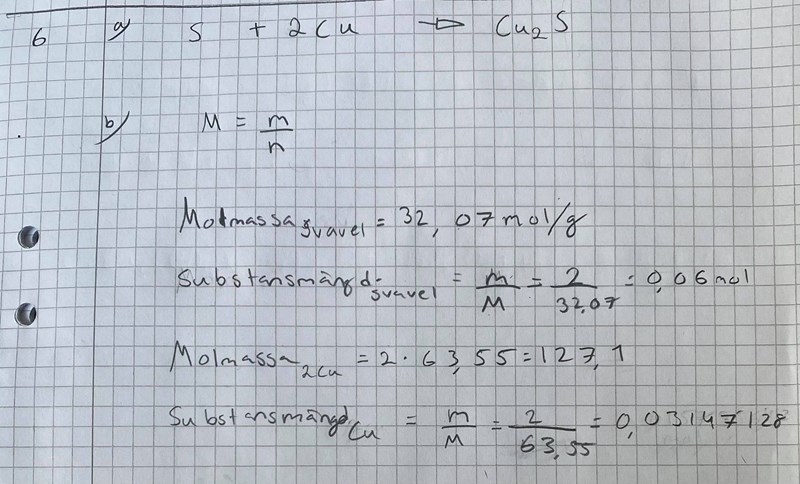 6 a) S + 2Cu → Cu₂S
b) M = m/n
Molmassa svavel = 32,07 mol/g
Substansmängd svavel = m/M = 2/32,07 = 0,06 mol
Molmassa 2Cu = 2 · 63,55 = 127,1
Substansmängd Cu = m/M = 2/63,55 = 0,03147128